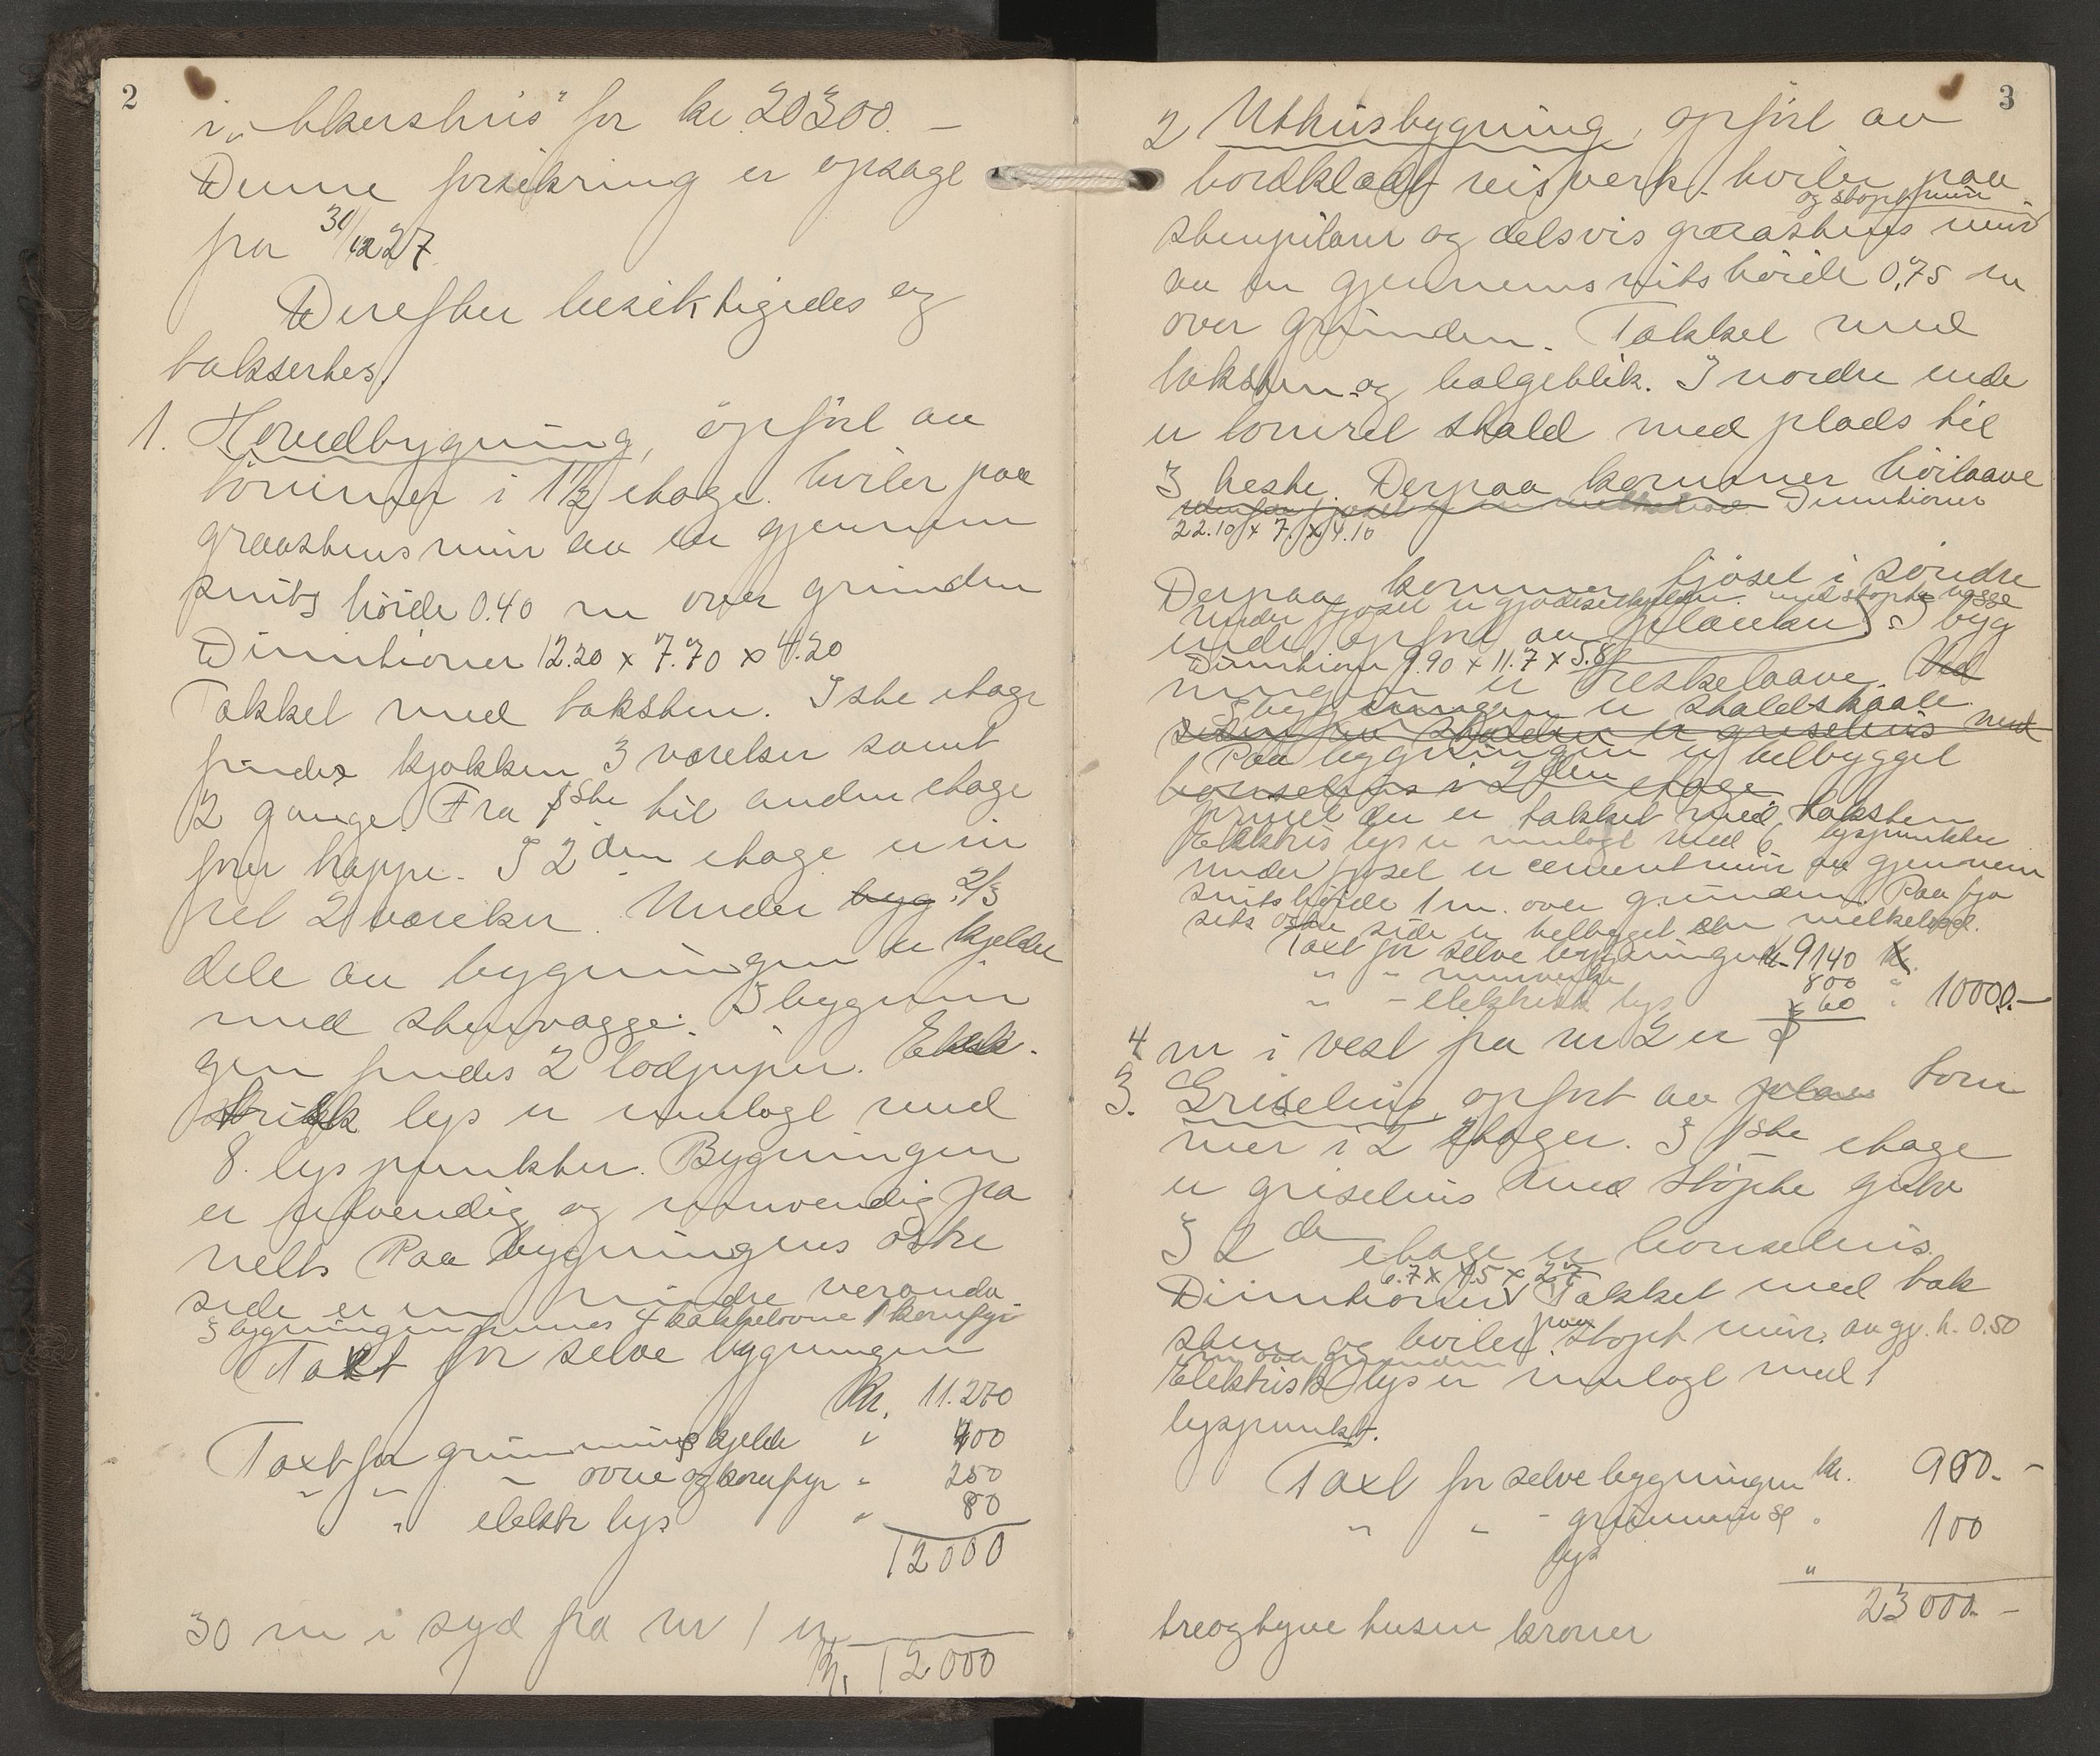 2
i "Akershus" for kr. 20300.—
Denne forsikring er opsagt
fra 31/12 27
Derefter besiktigedes og
takserttes.
1. Hovedbygning, opført av
tømmer i 1½ etage. hviler paa
graastens mur av en gjennem
snits høide 0.40 m over grunden
Dimentioner 12.20 x 7.70 x 4.20
Takket med taksten. I ste etage
findes kjøkken 3 værelser samt
2 gange. Fra 1ste til anden etage
fører trappe. I 2den etage er in
rel 2 værelser. Under byg 2/3
dele av bygningen er kjelder
med stenvægge. I bygnin
gen findes 2 lødpiper. Elek.
trisk lys er innlagt med
8. lyspunkter. Bygningen
er utvendig og innvendig pa
nelts Paa bygningens østre
side er en mindre veranda
I bygningen finnes 4 kakkelovne 1 komfyr
Taxt for selve bygningen
Kr. 11.270
Taxt for grunnmur og kjelde " 400
" " " ovne og komfyr " 250
" " elektr lys " 80
12000
30 m i syd fra nr 1 er
Kr. 12000
3
2 Uthusbygning, opført av
bordklædt reisverk. hviler paa
og støpt mur
stenpilarer og delsvis graastens mur
av en gjennemsnits høide 0,75 m
over grunden. Takket med
taksten og bølgeblik. I nordre ende
er tømret stald med plads til
3 heste. Derpaa kommer høilaave
Dimentioner
22.10 x 7. x 4.10
Derpaa kommer fjøset i søndre
Under fjøset er gjødselkjelder. med støpte vægge
ende opført av planker. I byg
Dimention 9.90 x 11.7 x 5.8
ningen er treskelaave. Ved
I bygningen er staldskaale.
siden av stalden er grisehus med
Paa bygningen er tilbygget
hønsehus i 2den etage
skjul der er takket med taksten
Elektris lys er innlagt med 6 lyspunkter
under fjøset er cementmur av gjennem
snits høide 1 m. over grunden. Paa fjø
sets østre side er tilbygget et melkebod.
Taxt for selve bygningen kr. 9140 kr.
" " murverke 800 "
" – elektrisk lys 60 " 10000.—
4 m i vest fra nr 2 er
3. Grisehus, opført av plan tøm
mer i 2 etager. I 1ste etage
er grisehus med støpte gulv
I 2de etage er hønsehus.
6.7 x 4.5 x 2.7
Dimentioner Takket med tak
sten og hviler paa støpt mur. av gj. h. 0.50
m over grunden
Elektrisk lys er innlagt med 1
lyspunkt.
Taxt for selve bygningen kr. 900.—
" " – grunnmur og " 100
lys "
23000.—
treogtyve tusen kroner